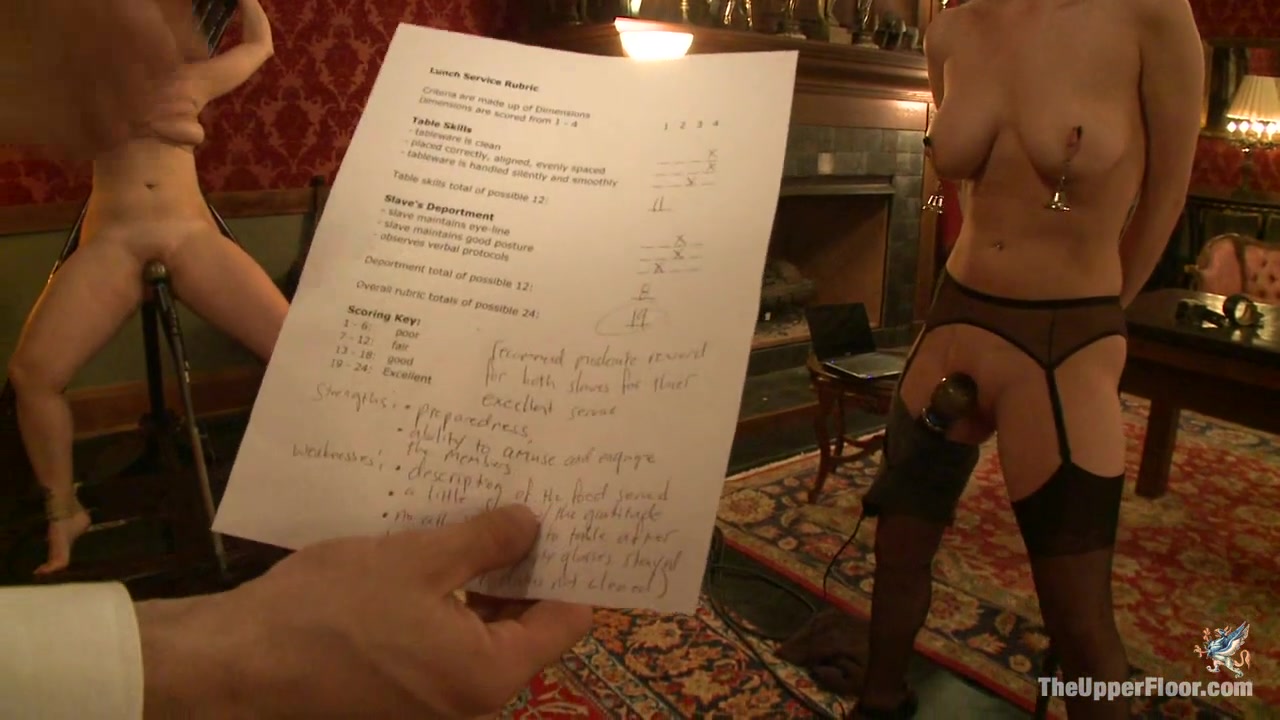 Lunch Service Rubric
Criteria are made up of Dimensions
Dimensions are scored from 1 - 4
1 2 3 4
Table Skills
- tableware is clean
- placed correctly, aligned, evenly spaced
- tableware is handled silently and smoothly
Table skills total of possible 12:
11
Slave's Deportment
- slave maintains eye-line
- slave maintains good posture
- observes verbal protocols
Department total of possible 12:
8
Overall rubric totals of possible 24:
19
Scoring Key:
1 - 6: poor
7 - 12: fair
13 - 18: good
19 - 24: Excellent
recommend moderate reward
for both slaves for their
excellent service
Strengths: • preparedness,
• ability to amuse and engage
the members
Weaknesses: • description of the food served
• a little
/the gratitude
to table after
glasses stayed
not cleared)
TheUpperFloor.com